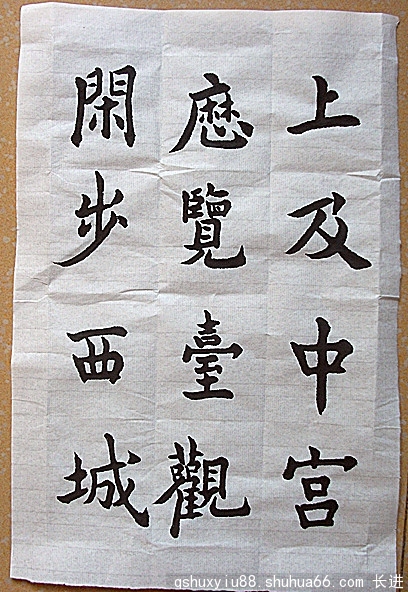 上及中宫
歷覽臺觀
閑步西城
gshuxyiu88.shuhua66.com 长进